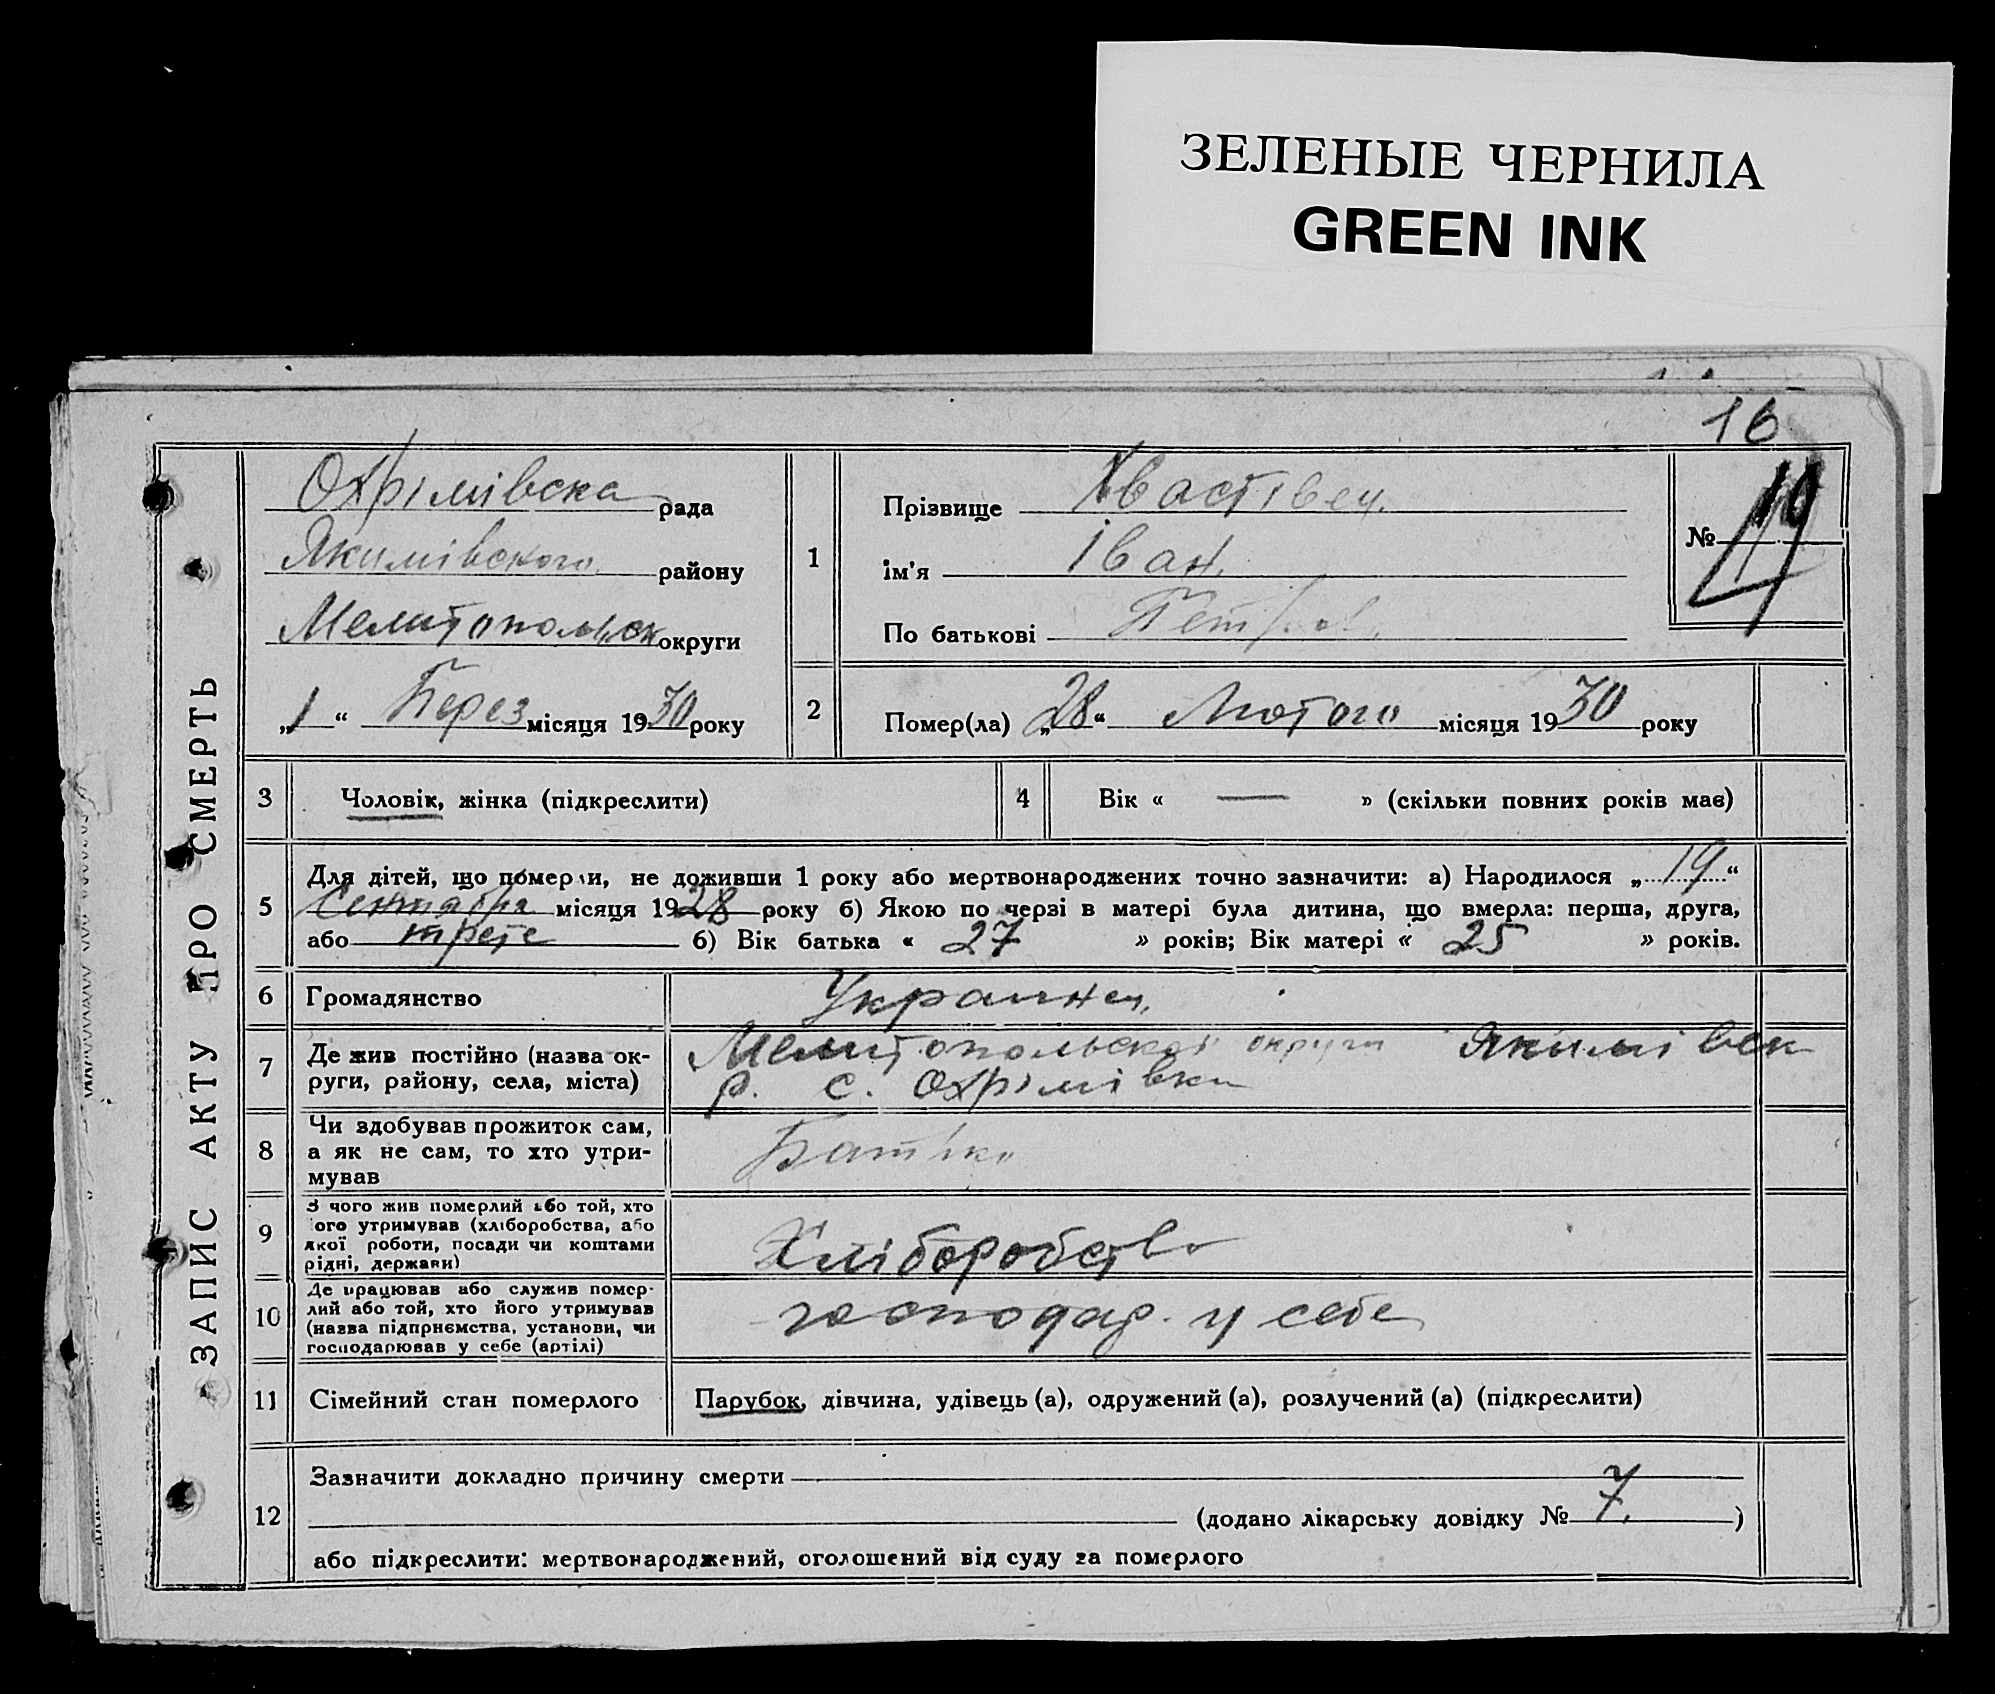 ЗЕЛЕНЫЕ ЧЕРНИЛА
GREEN INK
16
ЗАПИС АКТУ ПРО СМЕРТЬ
Охрімівска рада
Якимівского району
Мелитопольск округи
„1“ Берез місяця 1930 року
1
Прізвище Хвастівец.
ім'я Іван.
По батькові Петров.
№
2
Помер(ла) „28“ Лютого місяця 1930 року
3 Чоловік, жінка (підкреслити)
4 Вік « — » (скільки повних років має)
5
Для дітей, що померли, не доживши 1 року або мертвонароджених точно зазначити: а) Народилося „19“
Сентября місяця 1928 року б) Якою по черзі в матері була дитина, що вмерла: перша, друга,
або трете б) Вік батька « 27 » років; Вік матері « 25 » років.
6 Громадянство Украинец.
7
Де жив постійно (назва ок-
руги, району, села, міста)
Мелитопольской округи Якимівск
р. с. Охрімівка
8
Чи здобував прожиток сам,
а як не сам, то хто утри-
мував
Батько
9
З чого жив померлий або той, хто
його утримував (хліборобства, або
якої роботи, посади чи коштами
рідні, держави)
Хліборобство
10
Де працював або служив помер-
лий або той, хто його утримував
(назва підприємства, установи, чи
господарював у себе (артілі)
господар. у себе
11 Сімейний стан померлого Парубок, дівчина, удівець (а), одружений (а), розлучений (а) (підкреслити)
12
Зазначити докладно причину смерти
(додано лікарську довідку № 7. )
або підкреслити: мертвонароджений, оголошений від суду за померлого